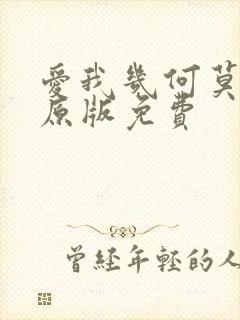 愛我幾何莫
原版免費
曾經年輕的人